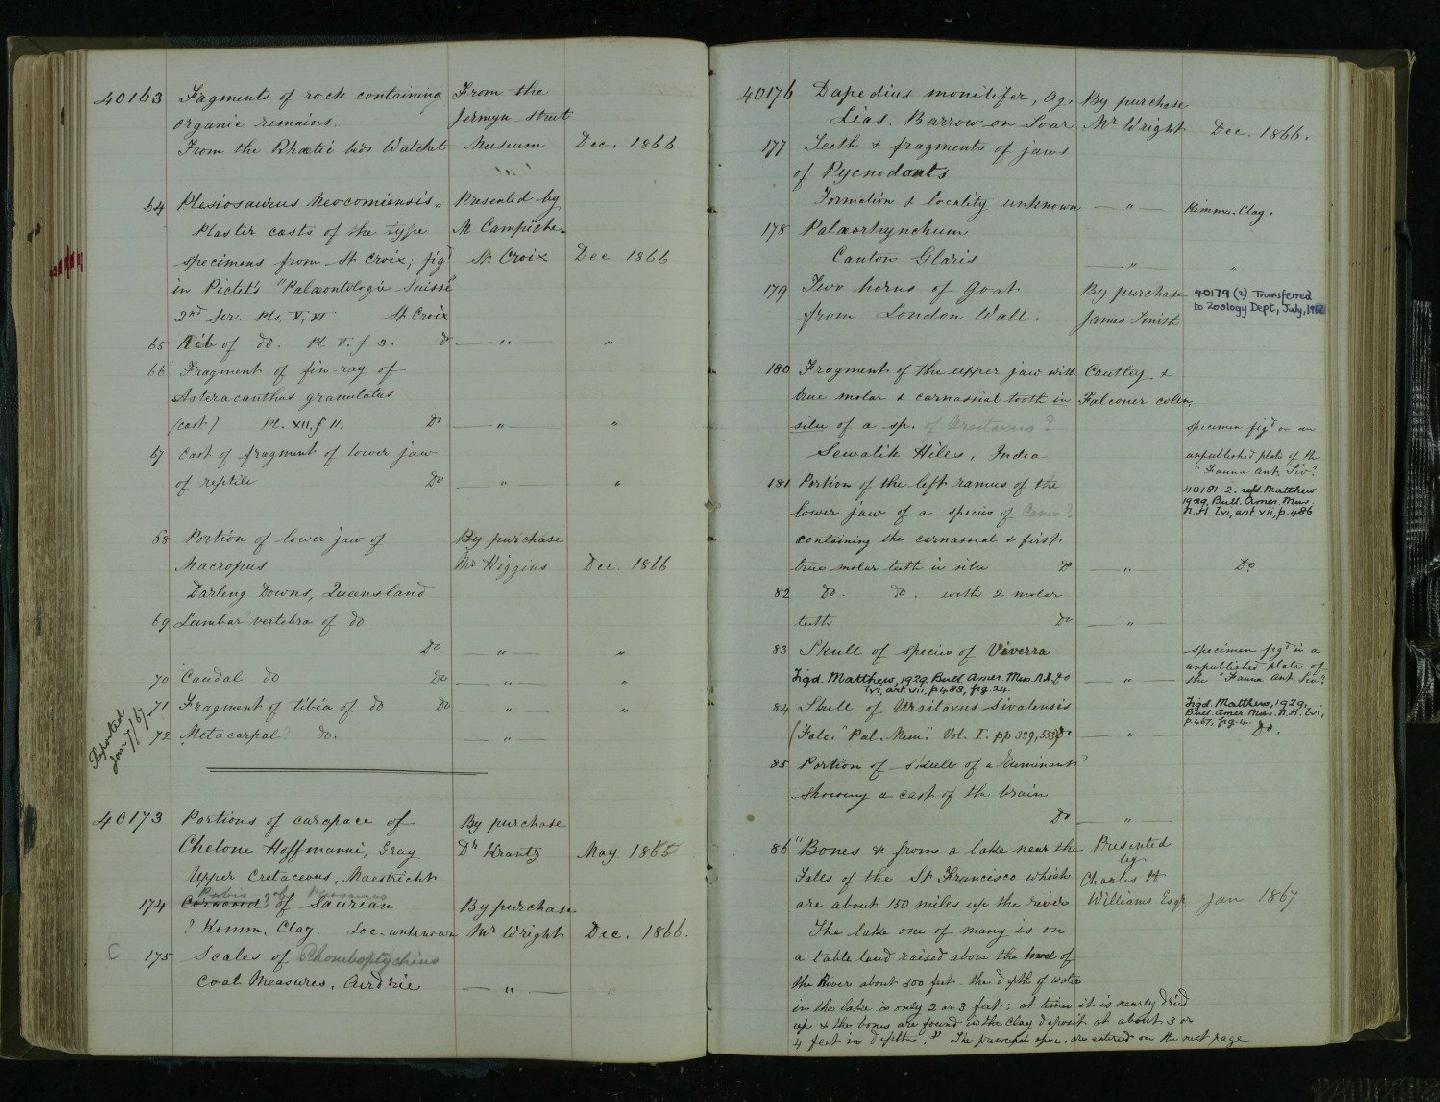 40163 Fragments of rock containing From the
organic remains. Jermyn Street
From the Rhætic bds Watchet Museum Dec. 1866
64 Plesiosaurus Neocomiensis. Presented by
Plaster casts of the type M. Campiche.
specimens from St Croix; figd St Croix Dec 1866
in Pictet's "Palæontologie Suisse"
2nd Ser. Pls. V, XI St Croix
65 Rib of do. Pl. V. f 2. do — " — "
66 Fragment of fin-ray of
Asteracanthus granulatus
(cast) Pl. XII, f 11. Do — " — "
67 Cast of fragment of lower jaw
of reptile Do — " — "
68 Portion of lower jaw of By purchase
Macropus Mr Higgins Dec. 1866
Darling Downs, Queensland
69 Lumbar vertebra of do
Do — " — "
70 Caudal do do — " — "
71 Fragment of tibia of do Do — " — "
Reported Jan 7/67
72 Metacarpal? do. — " —
40173 Portions of carapace of By purchase
Chelone Hoffmanni, Gray Dr Krantz May 1865
Upper Cretaceous, Maestricht
Pubis
174 Coracoid? of Saurian By purchase
? Kimm. Clay Loc. unknown Mr Wright Dec. 1866.
C 175 Scales of Rhomboptychius
Coal Measures, Airdrie — " —
40176 Dapedius monilifer, Ag. By purchase
Lias. Barrow-on-Soar Mr Wright Dec. 1866.
177 Teeth & fragments of jaws
of Pycnodonts
Formation & locality unknown — " — Kimm. Clay.
178 Palæorhynchum
Canton Glaris — " — "
179 Two horns of Goat By purchase 40179 (2) Transferred
to Zoology Dept, July, 19
from London Wall. James Smith
180 Fragment of the upper jaw with Cautley &
true molar & carnassial tooth in Falconer colln.
situ of a sp. of Ursitavus? specimen figd on an
unpublished plate of the
Sewalik Hills, India "Fauna Ant. Siv."
181 Portion of the left ramus of the 40181-2. refd. Matthew
1929, Bull. Amer. Mus.
N.H. lvi, art vii, p. 486
lower jaw of a species of Canis?
containing the carnassial & first
true molar teeth in situ Do — " — Do
82 Do. do. with 2 molar
teeth Do — " —
83 Skull of species of Viverra specimen figd in a
unpublished plate of
the "Fauna Ant. Siv."
Figd. Matthew, 1929, Bull. Amer. Mus. N.H. Do — " —
lvi, art vii, p. 483, fig. 24.
84 Skull of Ursitavus Sivalensis Figd. Matthew, 1929,
Bull. Amer Mus. N.H. lvi,
p. 467, fig. 4.
(Falc. "Pal. Mem." Vol. I. pp 329, 553) Do — " — Do.
85 Portion of skull of a Ruminant?
showing a cast of the brain
Do — " —
86 "Bones &c from a lake near the Presented
by
Falls of the St Francisco which Charles H
are about 150 miles up the river Williams Esqr Jan 1867
The lake one of many is on
a table land raised above the level of
the River about 200 feet. the depth of water
in the lake is only 2 or 3 feet: at times it is nearly dried
up & the bones are found in the clay deposit at about 3 or
4 feet in depth." The principal spec. are entered on the next page